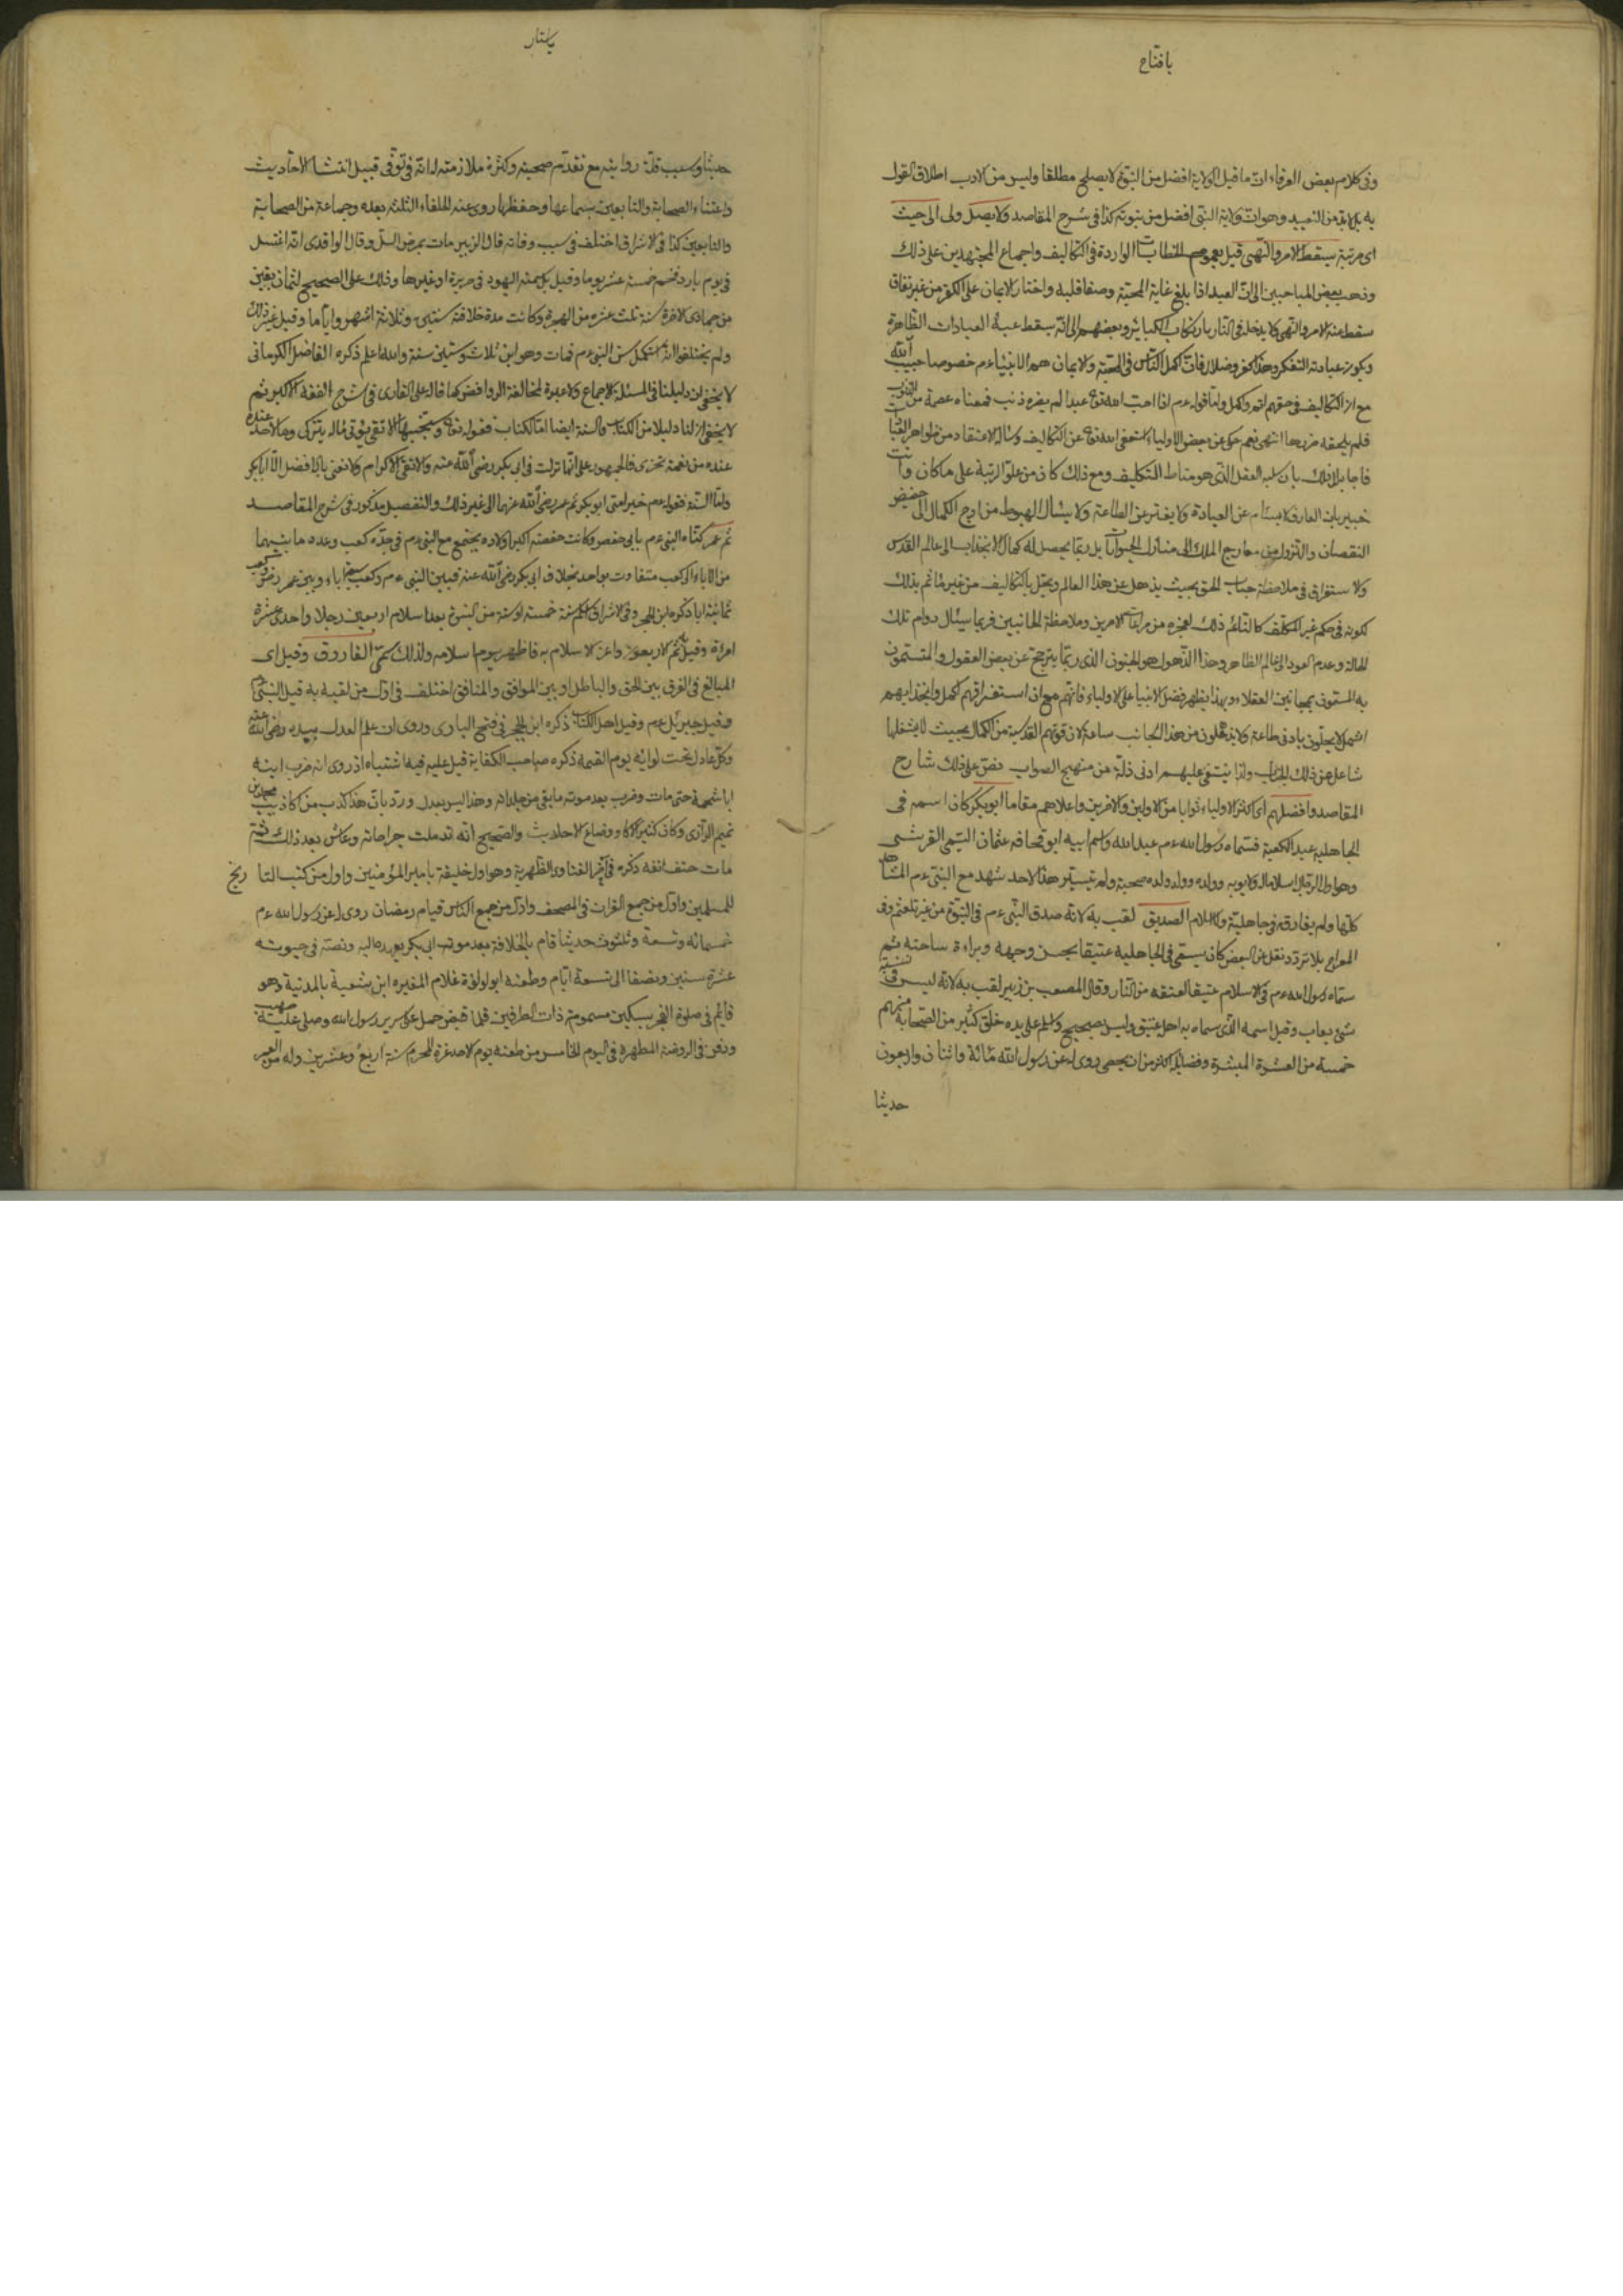 يا فتاح
وفى كلام بعض العرفاء ان ما قيل الولاية افضل من النبوة لا يصلح مطلقا وليس من الادب اطلاق القول
به بل لا بد من التقييد وهو ان ولاية النبى افضل من نبوته كذا فى شرح المقاصد ولا يصل ولى الى حيث
اى مرتبة يسقط الامر والنهى قيل بعموم الخطابات الواردة فى التكاليف واجماع المجتهدين على ذلك
وذهب بعض المباحيين الى ان العبد اذا بلغ غاية المحبة وصفا قلبه واختار الايمان على الكفر من غير نفاق
سقط عنه الامر والنهى ولا يدخله فى النار بارتكاب الكبائر وبعضهم الى انه يسقط عنه العبادات الظاهرة
ويكون عبادته التفكر وهذا كفر وضلال فان اكمل الناس فى المحبة والايمان هم الانبياء ءم خصوصا حبيب الله
مع ان التكاليف فى حقهم اتم واكمل واما قوله ءم اذا احب الله تعا عبدا لم يضره ذنب فمعناه عصمة من الذنوب
فلم يلحقه ضررها انتهى نعم حكى عن بعض الاولياء استعفى الله تعا عن التكاليف وسأله الاعتقاد من ظواهر العبادات
فاجابه لذلك بان سلبه العقل الذى هو مناط التكليف ومع ذلك كان من علو الرتبة على ما كان وانت
خبير بان العارف لا يسأم عن العبادة ولا يفتر عن الطاعة ولا يسأل الهبوط من اوج الكمال الى حضيض
النقصان والنزول من معارج الملك الى منازل الحيوانات بل ربما يحصل له كمال الانجذاب الى عالم القدس
والاستغراق فى ملاحظة جناب الحق بحيث يذهل عن هذا العالم ويخل بالتكاليف من غير مأثم بذلك
لكونه فى حكم غير المكلف كالنائم ذلك لعجزه من مراعات الامرين وملاحظة الجانبين فربما يسئال دوام تلك
الحالة وعدم العود الى عالم الظاهر وهذا الذهول هو الجنون الذى ربما يترجح عن بعض العقول والمتسمون
به المسمون بمجانين العقلاء وبهذا يظهر فضل الانبياء على الاولياء فانهم مع ان استغراقهم اكمل وانجذابهم
اشمل لا يخلون بادنى طاعة ولا يذهلون من هذا الجانب ساعة لان قوتهم القدسية من الكمال بحيث لا يشغلها
شاغل عن ذلك الجناب ولذا ينتفى عليهم ادنى ذلة من منهج الصواب نص على ذلك شارح
المقاصد وافضلهم اى اكثر الاولياء ثوابا من الاولين والاخرين واعلاهم مقاما ابو بكر كان اسمه فى
الجاهلية عبد الكعبة فسماه رسول الله ءم عبد الله واسم ابيه ابو قحافه عثمان التيمى القرشى
وهو اول الرجال اسلاما له ولابويه وولده وولد ولده صحبة ولم تيسير هذا لاحد شهد مع النبى ءم المشاهد
كلها ولم يفارقه فى جاهلية ولا اسلام الصديق لقب به لانه صدق النبى ءم فى النبوة من غير تلعثم وفى
المعراج بلا تردد نقل عن البعض كان يسمى فى الجاهلية عتيقا لحسن وجهه وبراءة ساحته ثم
سماه رسول الله ءم فى الاسلام عتيقا لعتقه من النار وقال المصعب بن زبير لقب به لانه ليس فى نسبه
شئ يعاب وقيل اسمه الذى سماه به اهله عتيق وليس بصحيح واسلم على يده خلق كثير من الصحابة منهم
خمسة من العشرة المبشرة وفضائله اكثر من ان يحصى روى له عن رسول الله مائة واثنان واربعون
حديثا
يا ستار
حديثا وسبب قلة روايته مع تقدم صحبته وكثرة ملازمته له انه توفى قبيل انتشار الاحاديث
واعتناء الصحابة والتابعين بسماعها وحفظها روى عنه الخلفاء الثلثه بعده وجماعة من الصحابة
والتابعين كذا فى الاشراق اختلف فى سبب وفاته قال الزبير مات بمرض السل وقال الواقدى انه اغتسل
فى يوم بارد فحم خمسة عشر يوما وقيل بل سمته اليهود فى حريرة او غيرها وذلك على الصحيح لثمان بقين
من جمادى الاخرة سنة ثلث عشره من الهجرة وكانت مدة خلافته سنتين وثلاثة اشهر واياما وقيل غير ذلك
ولم يختلفوا انه استكمل سن النبى ءم فمات وهو ابن ثلاث وستين سنة والله اعلم ذكره الفاضل الكرمانى
لا يخفى ان دليلنا فى المسئلة الاجماع ولا عبرة لمخالفة الروافض كما قاله على القارى فى شرح الفقه الاكبر ثم
لا يخفى ان لنا دليلا من الكتاب والسنة ايضا اما الكتاب فقوله تعا وسيجنبها الاتقى يؤتى ماله يتزكى وما لاحد عنده
عنده من نعمة تجزى فالجمهور على انها نزلت فى ابى بكر رضى الله عنه والاتقى الاكرم ولا نعنى بالافضل الا الاكبر
واما السنة فقوله ءم خير امتى ابو بكر ثم عمر رضى الله عنهما الى غير ذلك والتفصيل مذكور فى شرح المقاصد
ثم عمر كناه النبى ءم بابى حفص وكانت حفصة اكبر اولاده يجتمع مع النبى ءم فى جده كعب وعدد ما بينهما
من الاباء الى كعب متفاوت بواحد بخلاف ابى بكر رضى الله عنه فبين النبى ءم وكعب سبعة اباء وبين عمر وكعب
ثمانية ابا ذكره ابن الحجر وفى الاشراق اسلم سنة خمسة او ستة من النبوة بعد اسلام اربعين رجلا واحدى عشرة
امرءة وقيل تم الاربعون واعز الاسلام به فاظهر يوم اسلامه ولذلك سمى الفاروق وقيل اى
المبالغ فى الفرق بين الحق والباطل او بين الموافق والمنافق اختلف فى اول من لقبه به قيل النبى ءم
وقيل جبريل ءم وقيل اهل الكتاب ذكره ابن الحجر فى فتح البارى وروى ان علم العدل بيده رضى الله عنه
وكل عادل تحت لوائه يوم القيمة ذكره صاحب الكفاية قيل عليه فيه اشتباه اذ روى انه ضرب ابنه
ابا شحمة حتى مات وضرب بعد موته ما بقى من جلداته وهذا ليس بعدل ورد بان هذا كذب من كاذيب محمد بن
تميم الرازى وكان كثير الاكاذيب وضاع الاحاديث والصحيح انه تدملت جراحاته وعاش بعد ذلك ثم
مات حتف انفه ذكره فى آخر الفتاوى الظهيرية وهو اول خليفة بامير المؤمنين واول من كتب التاريخ
للمسلمين واول من جمع القرآن فى المصحف واول من جمع الناس قيام رمضان روى له عن رسول الله ءم
خمسمائه وتسعة وثلثون حديثا قام بالخلافة بعد موت ابى بكر بعهد اليه ونصه فى حيوته
عشرة سنين ونصفا الى تسعة ايام وطعنه ابو لولؤة غلام المغيره ابن شعبة بالمدنية وهو
قائم فى صلوة الفجر بسكين مسمومة ذات الطرفين فلما قبض حمل على سرير رسول الله وصلى عليه صهيب
ودفن فى الروضة المطهرة فى اليوم الخامس من طعنه يوم الاحد غرة المحرم سنة اربع وعشرين وله من العمر